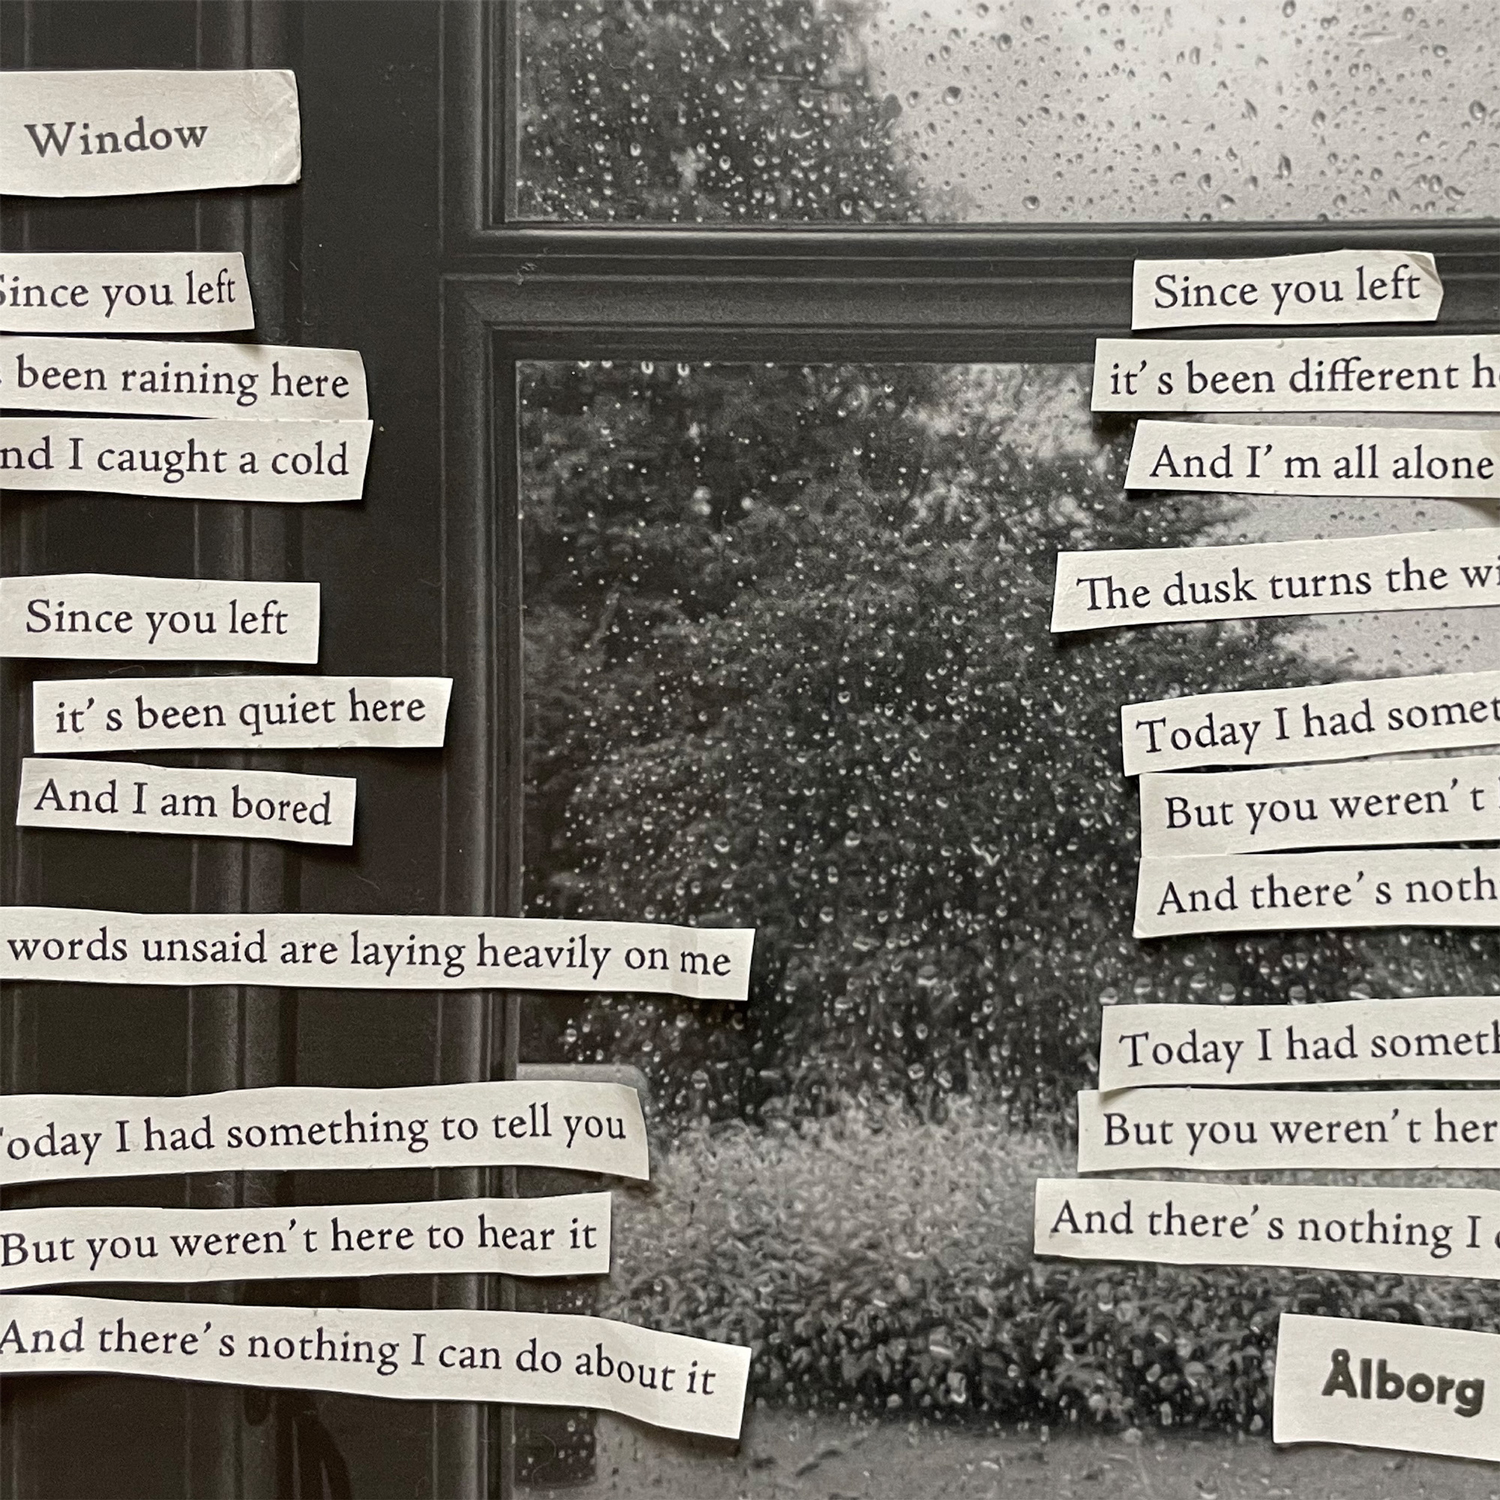 Window
Since you left
been raining here
nd I caught a cold
Since you left
it's been quiet here
And I am bored
words unsaid are laying heavily on me
Today I had something to tell you
But you weren't here to hear it
And there's nothing I can do about it
Since you left
it's been different
And I'm all alone
The dusk turns the
Today I had
But you weren't
And there's
Today I had
But you weren't
And there's nothing I
Ålborg